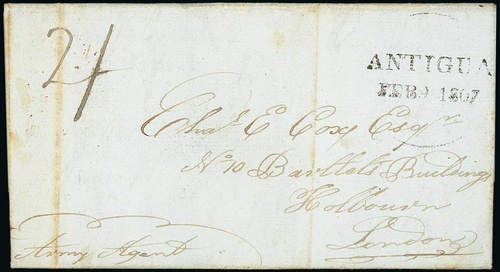 2/
ANTIGUA
FEB 9 1807
Chas. E. Cox Esqr.
No. 10 Bartlets Buildings
Holbourn
London
Army Agent